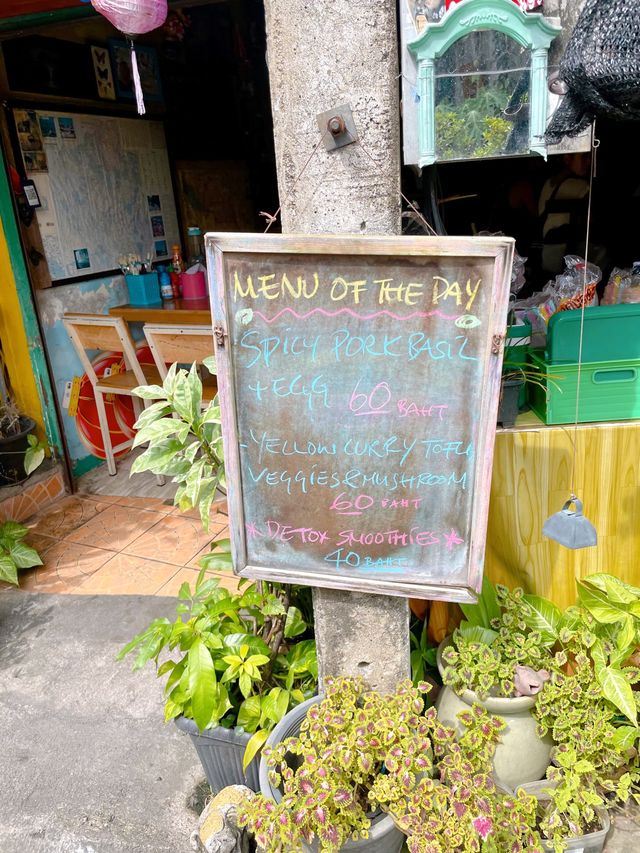 MENU OF THE DAY
SPICY PORK BASIL
+ EGG 60 BAHT
- YELLOW CURRY TOFU
VEGGIES & MUSHROOM
60 BAHT
* DETOX SMOOTHIES *
40 BAHT